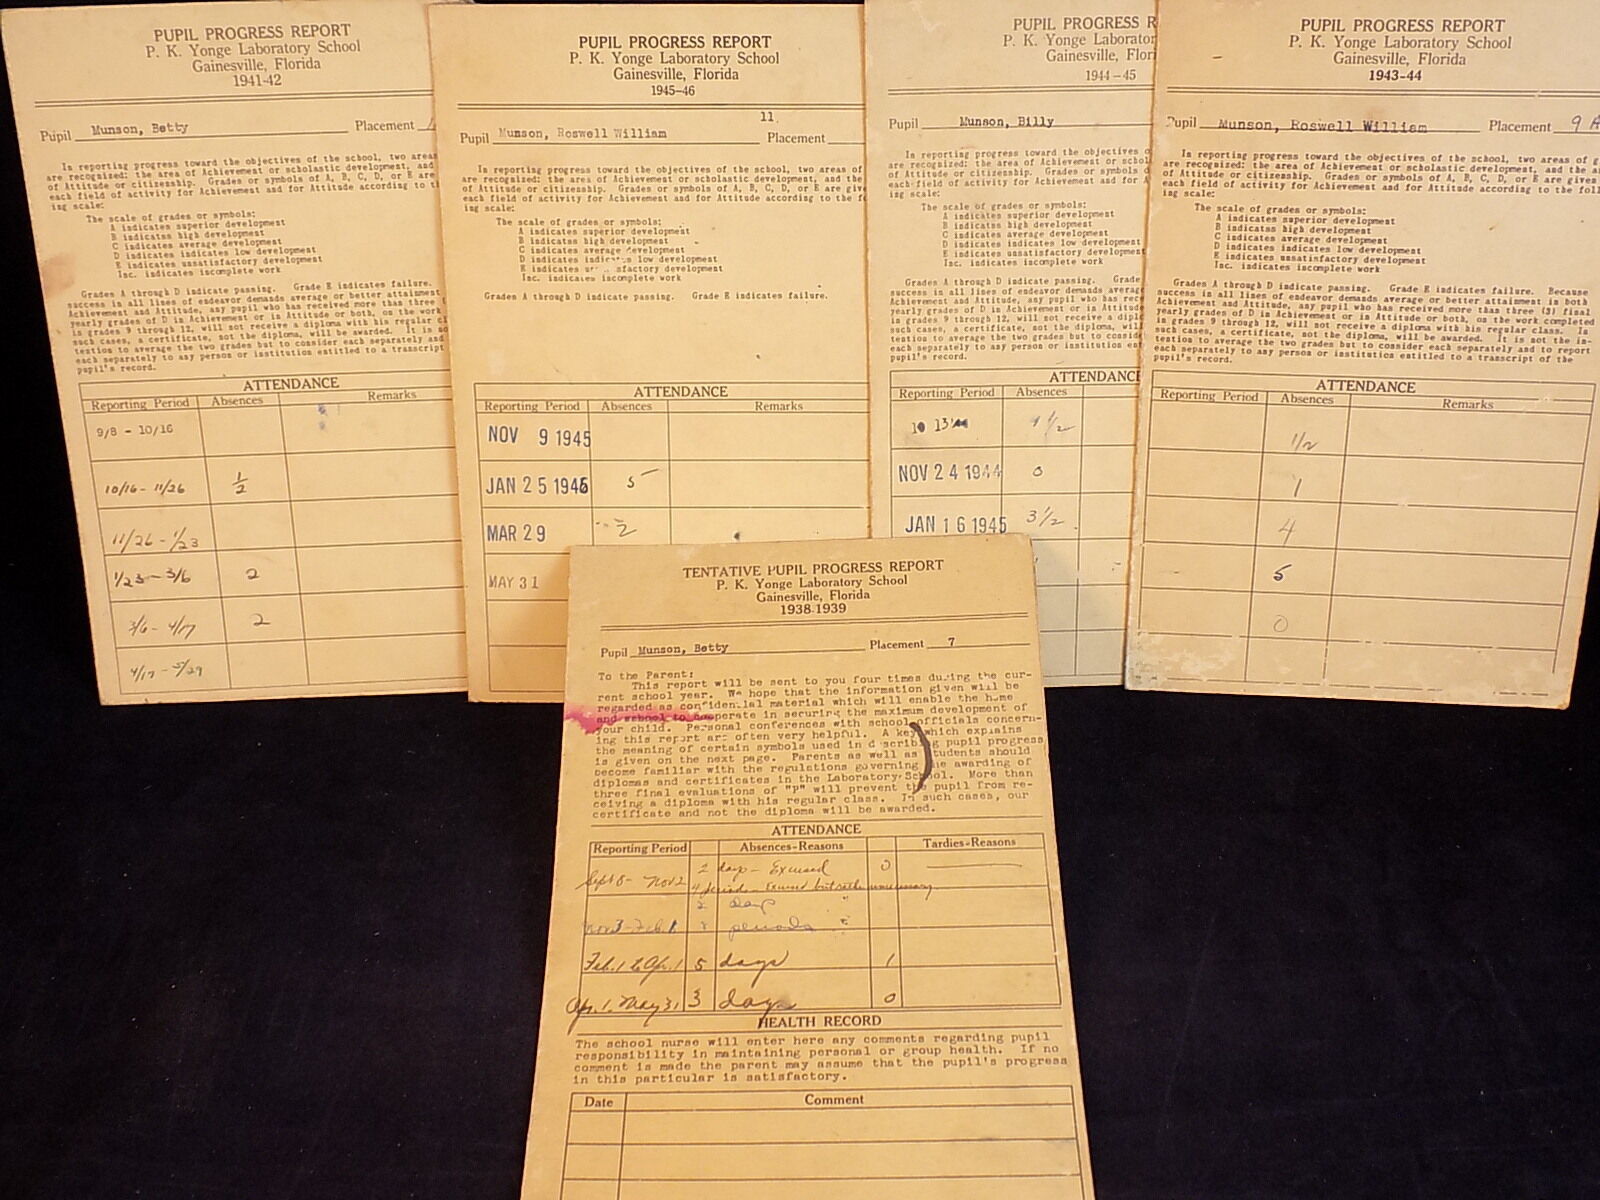 PUPIL PROGRESS REPORT
P. K. Yonge Laboratory School
Gainesville, Florida
1941-42
Pupil Munson, Betty Placement
In reporting progress toward the objectives of the school, two areas
are recognized: the area of Achievement or scholastic development, and
of Attitude or citizenship. Grades or symbols of A, B, C, D, or E are
each field of activity for Achievement and for Attitude according to t
ing scale:
The scale of grades or symbols:
A indicates superior development
B indicates high development
C indicates average development
D indicates indicates low development
E indicates unsatisfactory development
Inc. indicates incomplete work
Grades A through D indicate passing. Grade E indicates failure.
success in all lines of endeavor demands average or better attainment
Achievement and Attitude, any pupil who has received more than three (
yearly grades of D in Achievement or in Attitude or both, on the work
in grades 9 through 12, will not receive a diploma with his regular cl
such cases, a certificate, not the diploma, will be awarded. It is no
tention to average the two grades but to consider each separately and
each separately to any person or institution entitled to a transcript
pupil's record.
ATTENDANCE
Reporting Period Absences Remarks
9/8 - 10/16
10/16 - 11/26 1/2
11/26 - 1/23
1/23 - 3/6 2
3/6 - 4/17 2
4/17 - 5/29
PUPIL PROGRESS REPORT
P. K. Yonge Laboratory School
Gainesville, Florida
1945-46
11
Pupil Munson, Roswell William Placement
In reporting progress toward the objectives of the school, two areas of
are recognized: the area of Achievement or scholastic development, and the
of Attitude or citizenship. Grades or symbols of A, B, C, D, or E are giv
each field of activity for Achievement and for Attitude according to the f
ing scale:
The scale of grades or symbols:
A indicates superior development
B indicates high development
C indicates average development
D indicates indicates low development
E indicates unsatisfactory development
Inc. indicates incomplete work
Grades A through D indicate passing. Grade E indicates failure.
ATTENDANCE
Reporting Period Absences Remarks
NOV 9 1945
JAN 25 1946 5
MAR 29 2
MAY 31
PUPIL PROGRESS R
P. K. Yonge Laborator
Gainesville, Flori
1944-45
Pupil Munson, Billy
In reporting progress toward the objectives o
are recognized: the area of Achievement or schol
of Attitude or citizenship. Grades or symbols of
each field of activity for Achievement and for A
ing scale:
The scale of grades or symbols:
A indicates superior development
B indicates high development
C indicates average development
D indicates indicates low development
E indicates unsatisfactory development
Inc. indicates incomplete work
Grades A through D indicate passing. Grade
success in all lines of endeavor demands average
Achievement and Attitude, any pupil who has rec
yearly grades of D in Achievement or in Attitude
in grades 9 through 12, will not receive a diplo
such cases, a certificate, not the diploma, wil
tention to average the two grades but to consid
each separately to any person or institution ent
pupil's record.
ATTENDANCE
Reporting Period Absences
10 13 1/2
NOV 24 1944 0
JAN 16 1945 3 1/2
PUPIL PROGRESS REPORT
P. K. Yonge Laboratory School
Gainesville, Florida
1943-44
Pupil Munson, Roswell William Placement 9 A
In reporting progress toward the objectives of the school, two areas of
are recognized: the area of Achievement or scholastic development, and the a
of Attitude or citizenship. Grades or symbols of A, B, C, D, or E are given
each field of activity for Achievement and for Attitude according to the foll
ing scale:
The scale of grades or symbols:
A indicates superior development
B indicates high development
C indicates average development
D indicates indicates low development
E indicates unsatisfactory development
Inc. indicates incomplete work
Grades A through D indicate passing. Grade E indicates failure. Because
success in all lines of endeavor demands average or better attainment in both
Achievement and Attitude, any pupil who has received more than three (3) final
yearly grades of D in Achievement or in Attitude or both, on the work completed
in grades 9 through 12, will not receive a diploma with his regular class. In
such cases, a certificate, not the diploma, will be awarded. It is not the in-
tention to average the two grades but to consider each separately and to report
each separately to any person or institution entitled to a transcript of the
pupil's record.
ATTENDANCE
Reporting Period Absences Remarks
1/2
1
4
5
0
TENTATIVE PUPIL PROGRESS REPORT
P. K. Yonge Laboratory School
Gainesville, Florida
1938-1939
Pupil Munson, Betty Placement 7
To the Parent:
This report will be sent to you four times during the cur-
rent school year. We hope that the information given will be
regarded as confidential material which will enable the home
and school to cooperate in securing the maximum development of
your child. Personal conferences with school officials concern-
ing this report are often very helpful. A key which explains
the meaning of certain symbols used in describing pupil progress
is given on the next page. Parents as well as students should
become familiar with the regulations governing the awarding of
diplomas and certificates in the Laboratory School. More than
three final evaluations of "P" will prevent the pupil from re-
ceiving a diploma with his regular class. In such cases, our
certificate and not the diploma will be awarded.
ATTENDANCE
Reporting Period Absences-Reasons Tardies-Reasons
Sept 8 - Nov 2 2 days - Excused 0
4 periods - Excused but rather unnecessary
2 days "
Nov 3 - Feb. 1 2 periods "
Feb. 1 to Apr. 1 5 days 1
Apr. 1. May 31 3 days 0
HEALTH RECORD
The school nurse will enter here any comments regarding pupil
responsibility in maintaining personal or group health. If no
comment is made the parent may assume that the pupil's progress
in this particular is satisfactory.
Date Comment